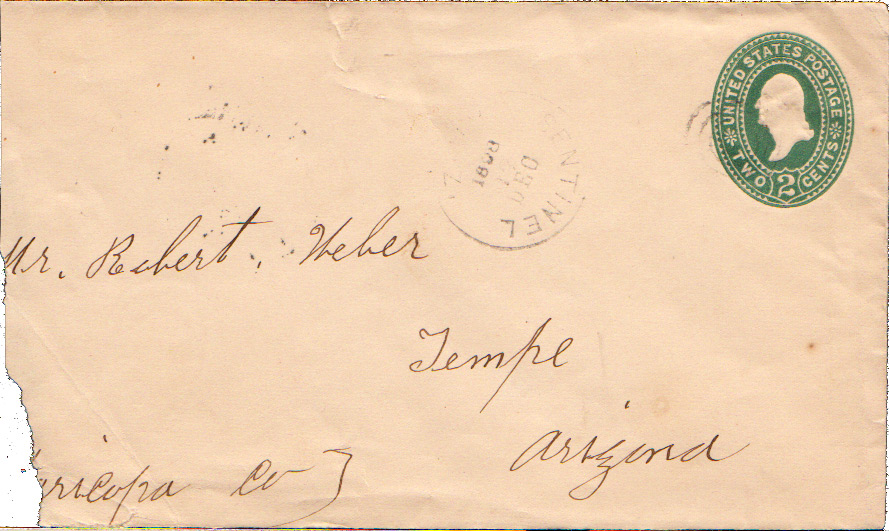 UNITED STATES POSTAGE
TWO 2 CENTS
SENTINEL
DEC
1898
Mr. Robert. Weber
Tempe
Arizona
aricopa Co